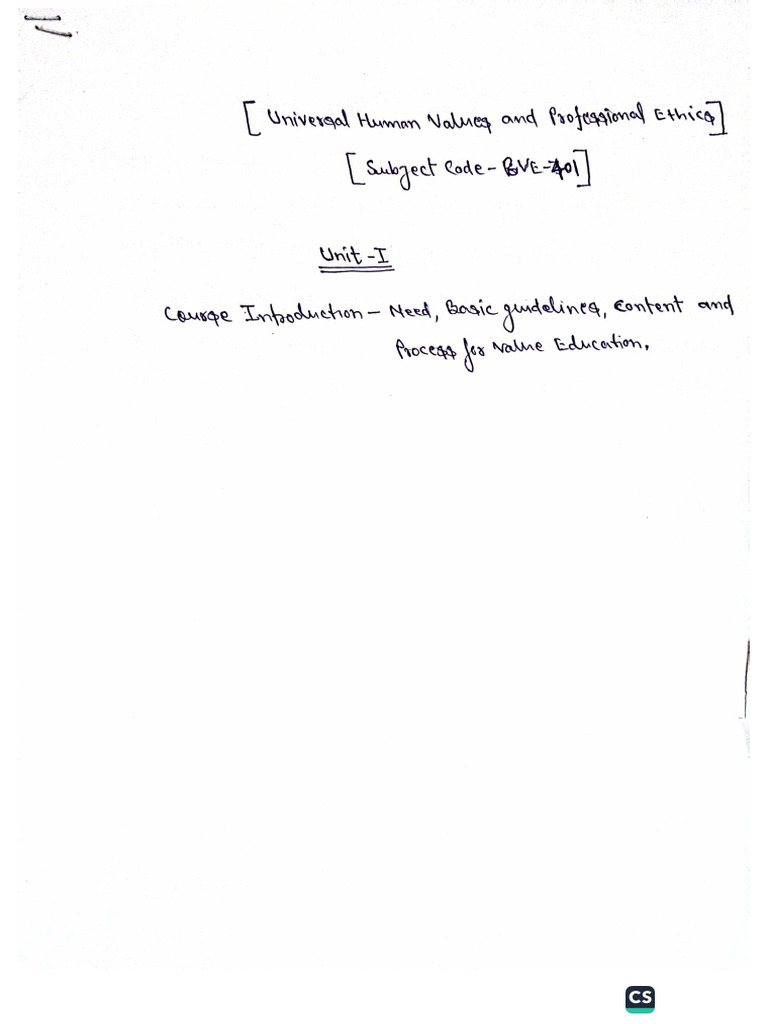 [Universal Human Values and Professional Ethics]
[Subject Code - BVE-401]
Unit - I
Course Introduction - Need, Basic guidelines, Content and
Process for Value Education.
CS